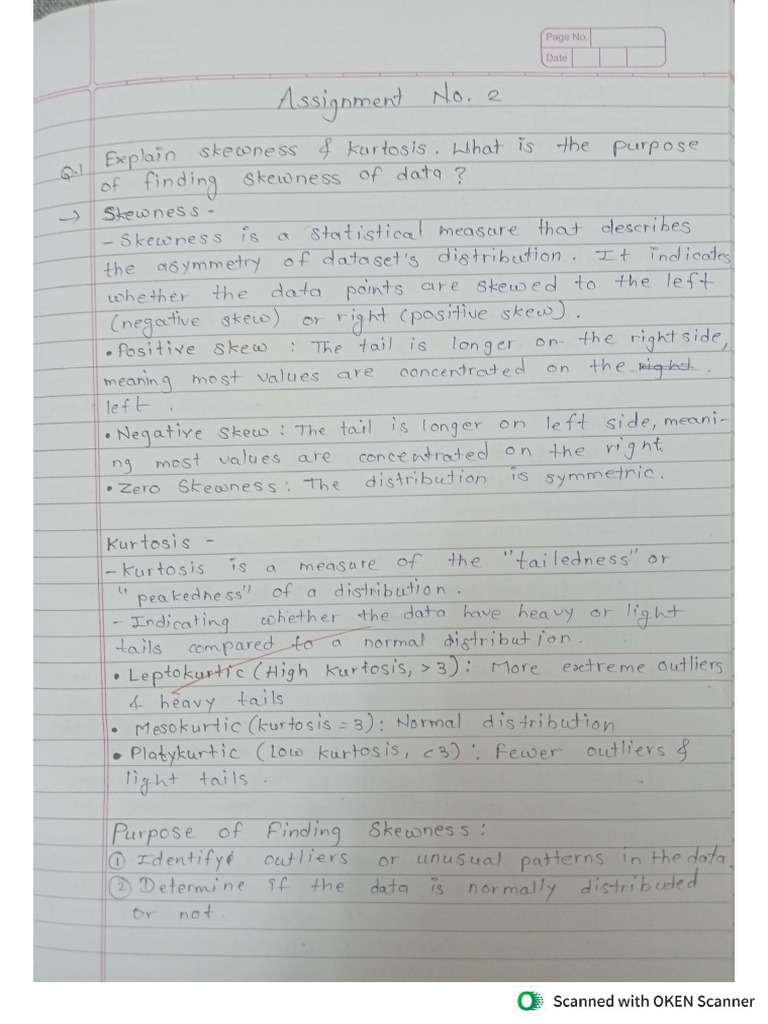 Page No.
Date
Assignment No. 2
Q.1 Explain skewness & kurtosis. What is the purpose
of finding skewness of data?
→ Skewness -
- Skewness is a statistical measure that describes
the asymmetry of dataset's distribution. It indicates
whether the data points are skewed to the left
(negative skew) or right (positive skew).
• Positive skew : The tail is longer on the right side,
meaning most values are concentrated on the right.
left.
• Negative skew : The tail is longer on left side, meani-
ng most values are concentrated on the right.
• Zero Skewness : The distribution is symmetric.
Kurtosis -
- Kurtosis is a measure of the "tailedness" or
"peakedness" of a distribution.
- Indicating whether the data have heavy or light
tails compared to a normal distribution.
• Leptokurtic (High kurtosis, >3) : More extreme outliers
& heavy tails
• Mesokurtic (kurtosis = 3) : Normal distribution
• Platykurtic (Low kurtosis, <3) : Fewer outliers &
light tails.
Purpose of Finding Skewness :
① Identify outliers or unusual patterns in the data.
② Determine if the data is normally distributed
or not.
Scanned with OKEN Scanner